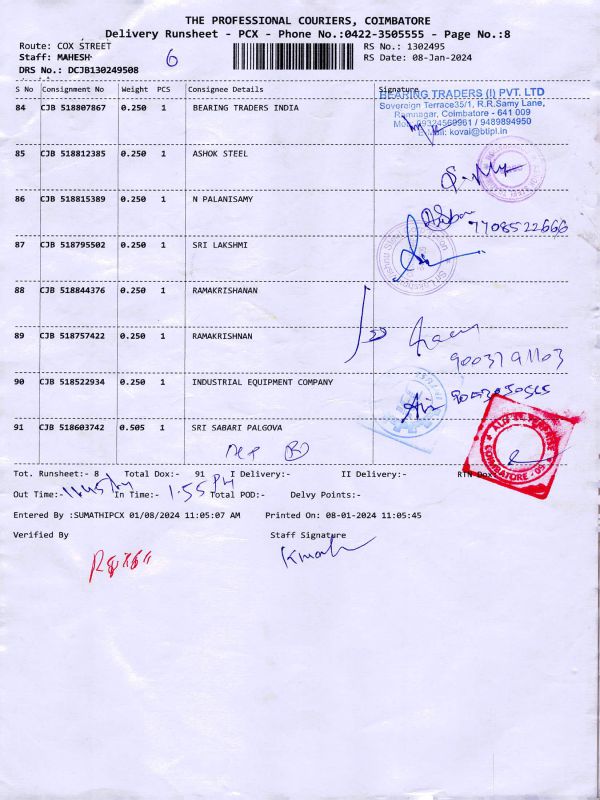 THE PROFESSIONAL COURIERS, COIMBATORE
Delivery Runsheet - PCX - Phone No.:0422-3505555 - Page No.:8
Route: COX STREET
RS No.: 1302495
Staff: MAHESH
6
RS Date: 08-Jan-2024
DRS No.: DCJB130249508
S No Consignment No Weight PCS Consignee Details Signature
BEARING TRADERS (I) PVT. LTD
Sovereign Terrace35/1, R.R.Samy Lane,
Ramnagar, Coimbatore - 641 009
Mob: 09324569961 / 9489894950
E-Mail: kovai@btipl.in
84 CJB 518807867 0.250 1 BEARING TRADERS INDIA
85 CJB 518812385 0.250 1 ASHOK STEEL
86 CJB 518815389 0.250 1 N PALANISAMY
7708522666
87 CJB 518795502 0.250 1 SRI LAKSHMI
88 CJB 518844376 0.250 1 RAMAKRISHANAN
89 CJB 518757422 0.250 1 RAMAKRISHNAN
9003791103
90 CJB 518522934 0.250 1 INDUSTRIAL EQUIPMENT COMPANY
91 CJB 518603742 0.505 1 SRI SABARI PALGOVA
COIMBATORE
Tot. Runsheet:- 8 Total Dox:- 91 I Delivery:- II Delivery:- RTN Dox
Out Time:- In Time:- 1.55 PM Total POD:- Delvy Points:-
Entered By :SUMATHIPCX 01/08/2024 11:05:07 AM Printed On: 08-01-2024 11:05:45
Verified By Staff Signature